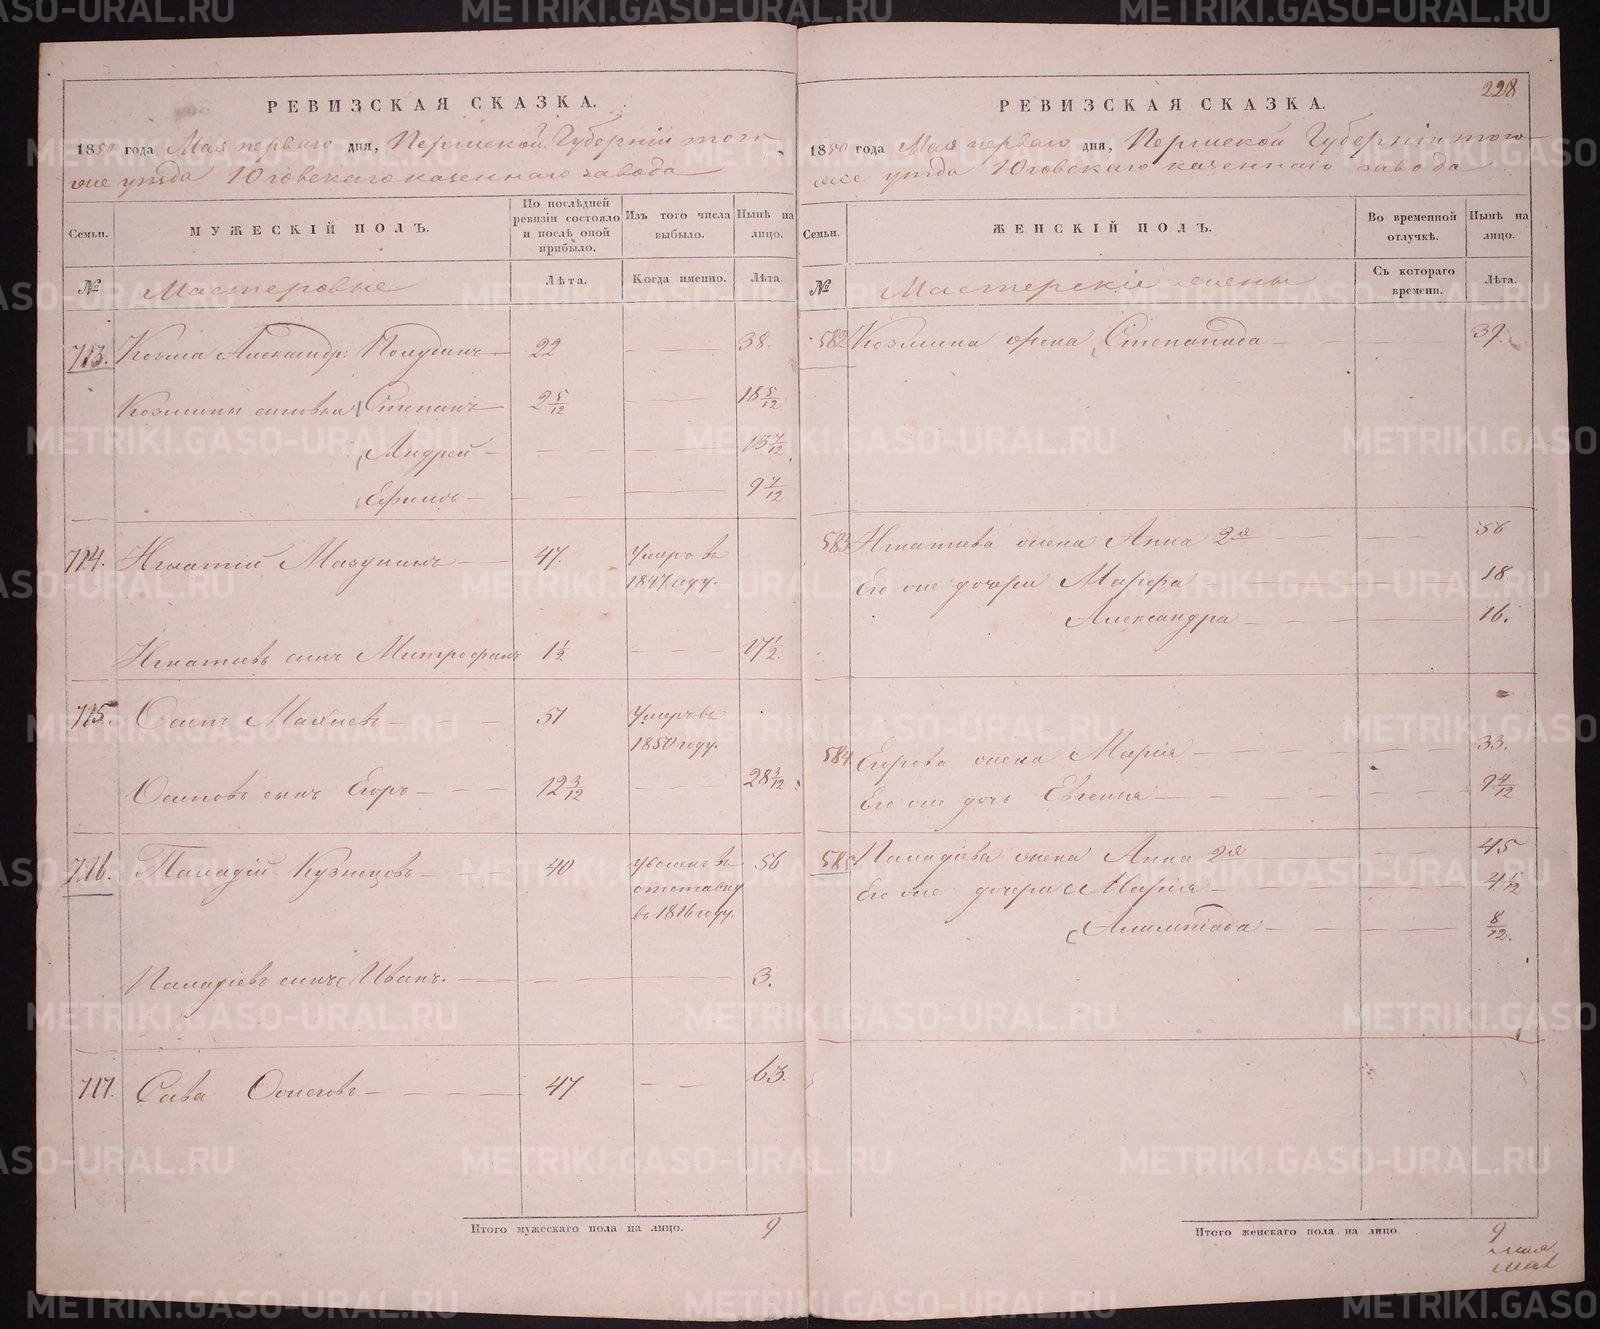 РЕВИЗСКАЯ СКАЗКА.
1850 года Мая перваго дня, Пермской Губерніи того
же уѣзда Юговскаго казеннаго завода
Семьи.
МУЖЕСКІЙ ПОЛЪ.
По послѣдней ревизіи состояло и послѣ оной прибыло.
Изъ того числа выбыло.
Нынѣ на лицо.
№
Мастеровые
Лѣта.
Когда именно.
Лѣта.
713. Козма Александр: 22 38.
Козмины сыновья Степанъ 2 5/12 18 5/12
Андрей 13 7/12
Ефимъ 9 7/12
714. Игнатій 47. Умеръ въ
1847 году.
Игнатьевъ сынъ Митрофанъ 1 1/2 17 1/2.
715. Осипъ 51 Умеръ въ
1850 году.
Осиповъ сынъ Егоръ 12 3/12 28 3/12
716. Паладій Кузнецовъ 40 Уволенъ въ 56
отставку
въ 1816 году.
Паладіевъ сынъ Иванъ. 3.
717. Сава 47 63.
Итого мужескаго пола на лицо. 9
228
РЕВИЗСКАЯ СКАЗКА.
1850 года Мая перваго дня, Пермской Губерніи того
же уѣзда Юговскаго казеннаго завода
Семьи.
ЖЕНСКІЙ ПОЛЪ.
Во временной отлучкѣ.
Нынѣ на лицо.
№
Мастерскіе жены
Съ котораго времени.
Лѣта.
582 Козмина жена Степанида 39.
583 Игнатьева жена Анна 2я 56
Его же дочери Марфа 18
Александра 16.
584. Егорова жена Марія 33.
Его же дочь Евгенія
585 Паладіева жена Анна 2я 45
Его же дочери Марія
Алимпіада 8/12.
Итого женскаго пола на лицо. 9